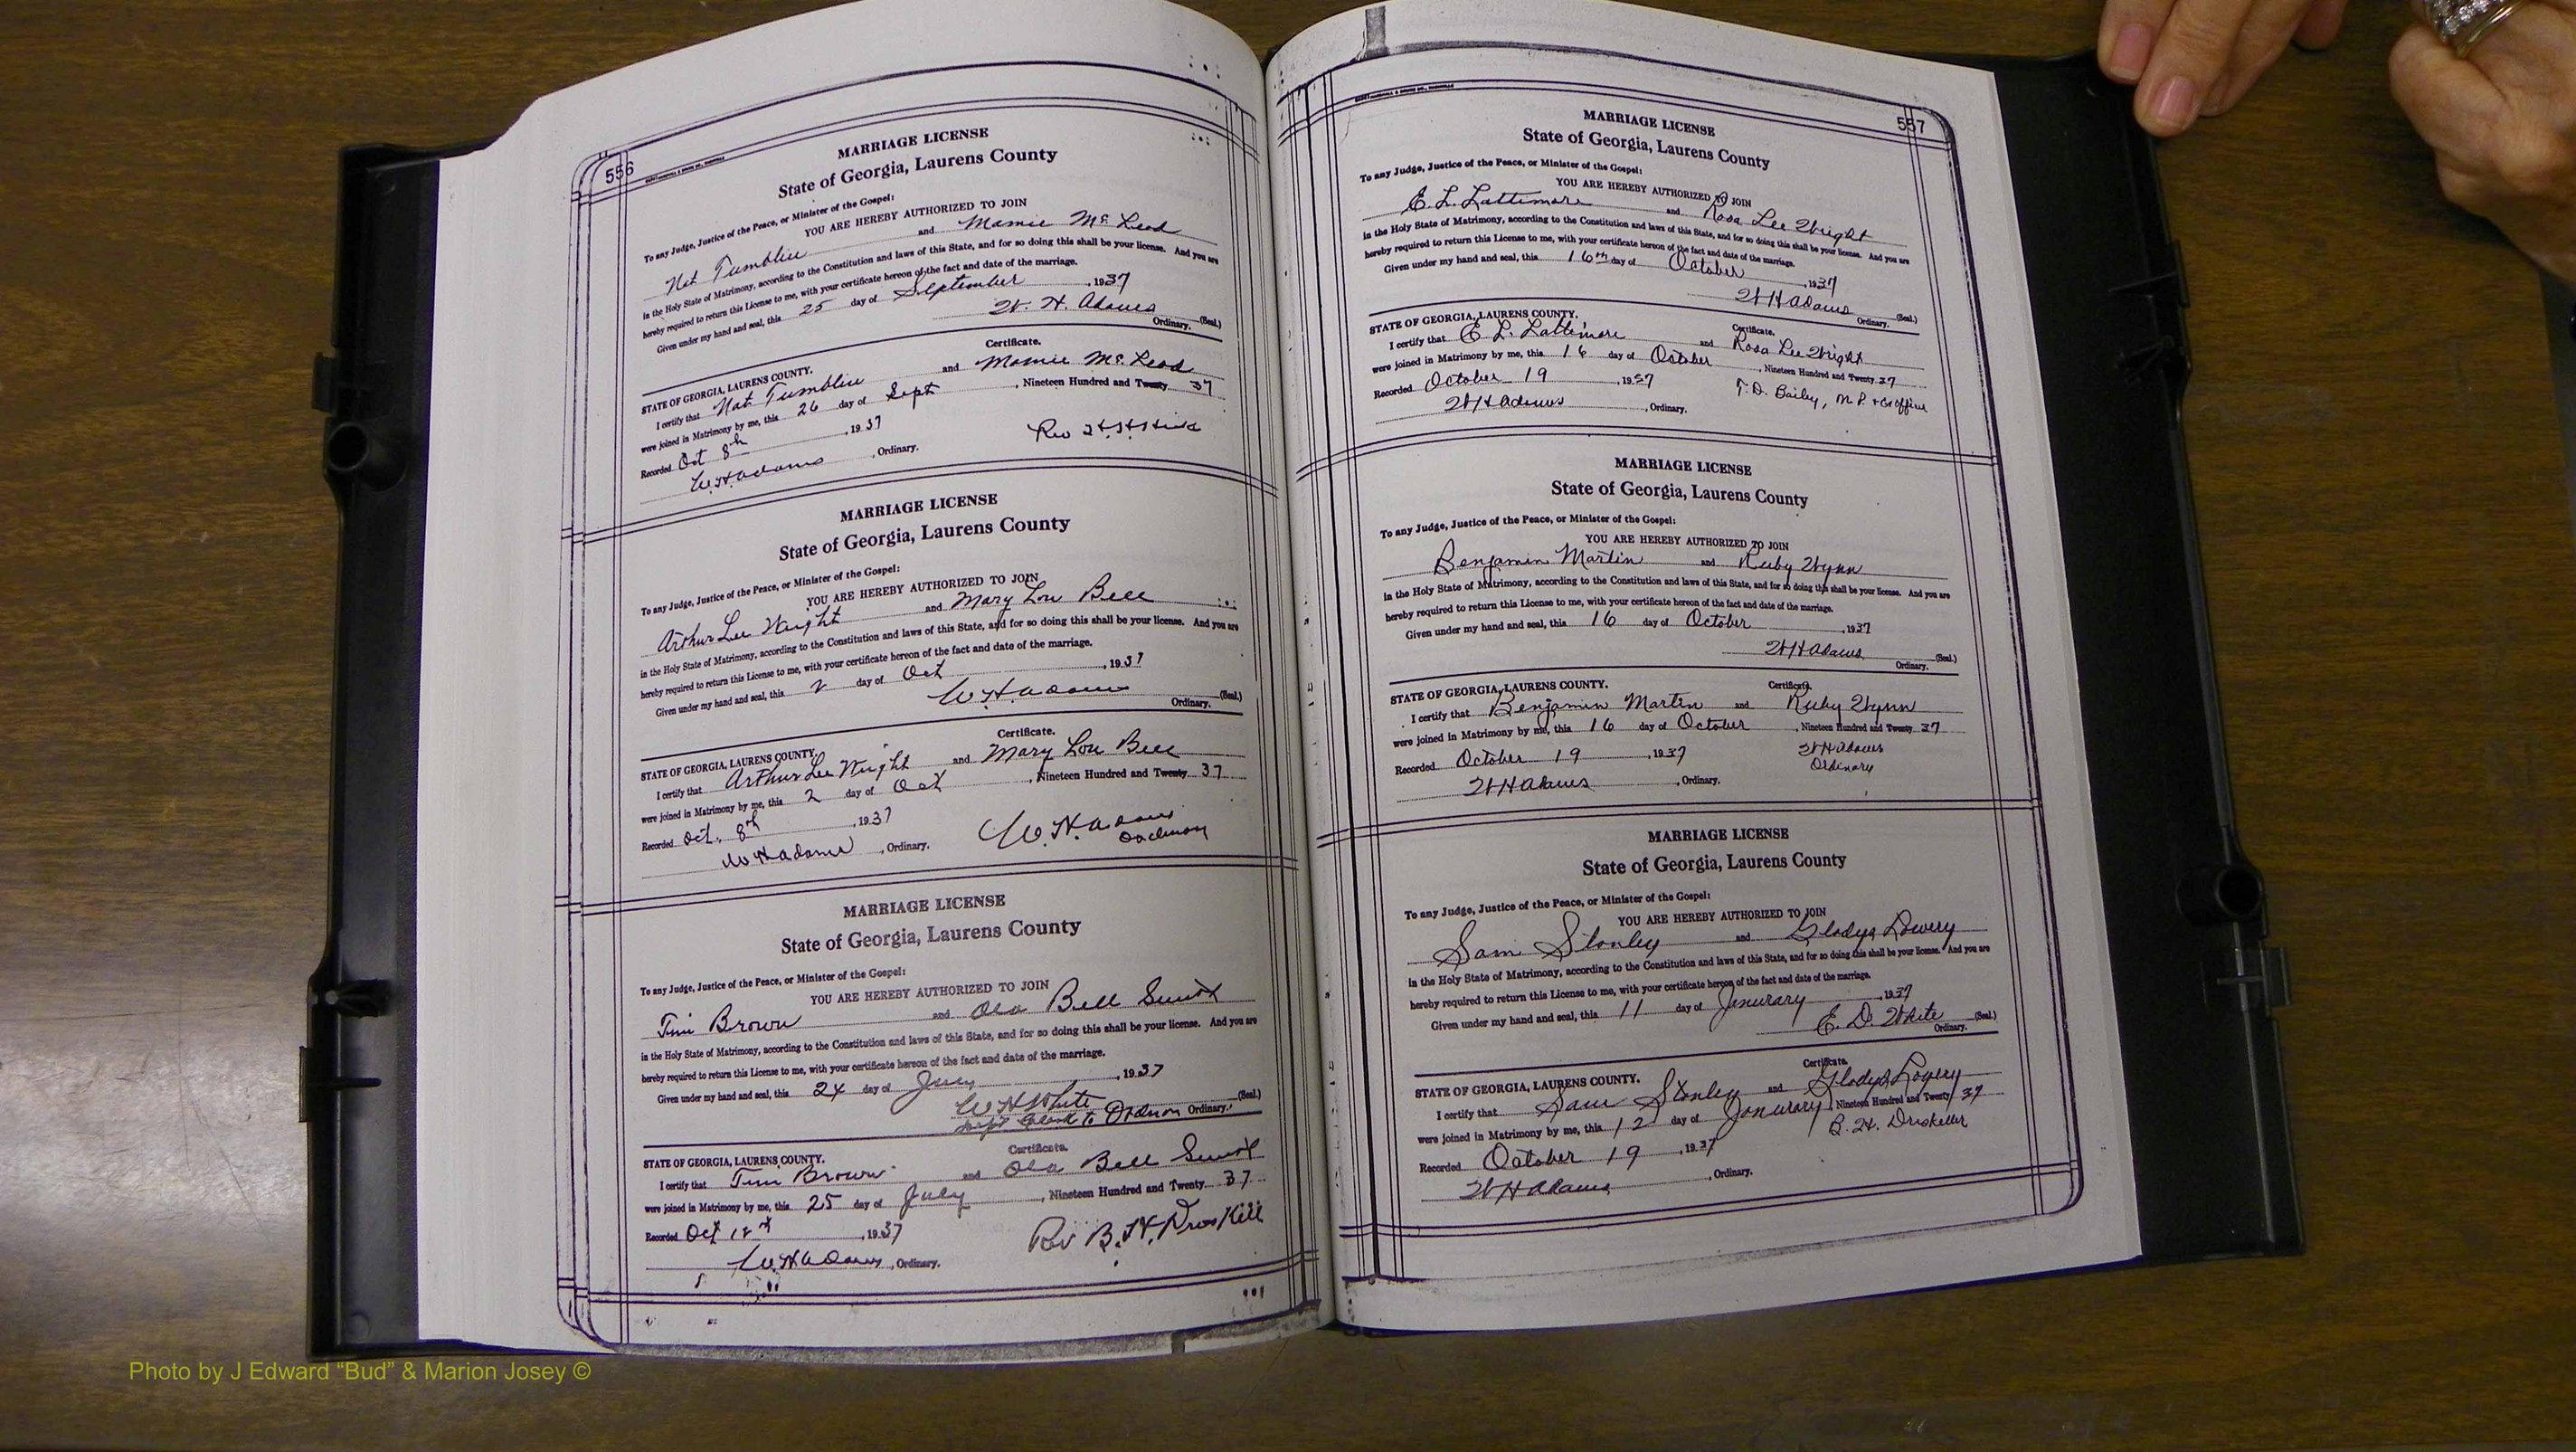 556
MARRIAGE LICENSE
State of Georgia, Laurens County
To any Judge, Justice of the Peace, or Minister of the Gospel:
YOU ARE HEREBY AUTHORIZED TO JOIN
Nat Tumblin and Mamie McLeod
in the Holy State of Matrimony, according to the Constitution and laws of this State, and for so doing this shall be your license. And you are
hereby required to return this License to me, with your certificate hereon of the fact and date of the marriage.
Given under my hand and seal, this 25 day of September, 1937
W. H. Adams (Seal.)
Ordinary.
Certificate.
STATE OF GEORGIA, LAURENS COUNTY.
I certify that Nat Tumblin and Mamie McLeod
were joined in Matrimony by me, this 26 day of Sept, Nineteen Hundred and Twenty 37
Recorded Oct 8th, 1937
Rev
W. H. Adams, Ordinary.
MARRIAGE LICENSE
State of Georgia, Laurens County
To any Judge, Justice of the Peace, or Minister of the Gospel:
YOU ARE HEREBY AUTHORIZED TO JOIN
Arthur Lee Wright and Mary Lou Bell
in the Holy State of Matrimony, according to the Constitution and laws of this State, and for so doing this shall be your license. And you are
hereby required to return this License to me, with your certificate hereon of the fact and date of the marriage.
Given under my hand and seal, this 2 day of Oct, 1937
W. H. Adams (Seal.)
Ordinary.
Certificate.
STATE OF GEORGIA, LAURENS COUNTY.
I certify that Arthur Lee Wright and Mary Lou Bell
were joined in Matrimony by me, this 2 day of Oct, Nineteen Hundred and Twenty 37
Recorded Oct. 8th, 1937
W. H. Adams
Ordinary
W H Adams, Ordinary.
MARRIAGE LICENSE
State of Georgia, Laurens County
To any Judge, Justice of the Peace, or Minister of the Gospel:
YOU ARE HEREBY AUTHORIZED TO JOIN
Tim Brown and Ola Bell
in the Holy State of Matrimony, according to the Constitution and laws of this State, and for so doing this shall be your license. And you are
hereby required to return this License to me, with your certificate hereon of the fact and date of the marriage.
Given under my hand and seal, this 24 day of July, 1937
White
(Seal.)
Ordinary.
Certificate.
STATE OF GEORGIA, LAURENS COUNTY.
I certify that Tim Brown and Ola Bell
were joined in Matrimony by me, this 25 day of July, Nineteen Hundred and Twenty 37
Recorded Oct, 1937
Rev B. H.
W. H Adams, Ordinary.
557
MARRIAGE LICENSE
State of Georgia, Laurens County
To any Judge, Justice of the Peace, or Minister of the Gospel:
YOU ARE HEREBY AUTHORIZED TO JOIN
E. L. Lattimore and Rosa Lee Wright
in the Holy State of Matrimony, according to the Constitution and laws of this State, and for so doing this shall be your license. And you are
hereby required to return this License to me, with your certificate hereon of the fact and date of the marriage.
Given under my hand and seal, this 16th day of October, 1937
W H Adams (Seal.)
Ordinary.
Certificate.
STATE OF GEORGIA, LAURENS COUNTY.
I certify that E. L. Lattimore and Rosa Lee Wright
were joined in Matrimony by me, this 16 day of October, Nineteen Hundred and Twenty 37
Recorded October 19, 1937
T. D. Bailey,
W H Adams, Ordinary.
MARRIAGE LICENSE
State of Georgia, Laurens County
To any Judge, Justice of the Peace, or Minister of the Gospel:
YOU ARE HEREBY AUTHORIZED TO JOIN
Benjamin Martin and Ruby Wynn
in the Holy State of Matrimony, according to the Constitution and laws of this State, and for so doing this shall be your license. And you are
hereby required to return this License to me, with your certificate hereon of the fact and date of the marriage.
Given under my hand and seal, this 16 day of October, 1937
W H Adams (Seal.)
Ordinary.
Certificate.
STATE OF GEORGIA, LAURENS COUNTY.
I certify that Benjamin Martin and Ruby Wynn
were joined in Matrimony by me, this 16 day of October, Nineteen Hundred and Twenty 37
Recorded October 19, 1937
W H Adams
Ordinary
W H Adams, Ordinary.
MARRIAGE LICENSE
State of Georgia, Laurens County
To any Judge, Justice of the Peace, or Minister of the Gospel:
YOU ARE HEREBY AUTHORIZED TO JOIN
Sam Stanley and Gladys Lowery
in the Holy State of Matrimony, according to the Constitution and laws of this State, and for so doing this shall be your license. And you are
hereby required to return this License to me, with your certificate hereon of the fact and date of the marriage.
Given under my hand and seal, this 11 day of Janurary, 1937
E. D. White (Seal.)
Ordinary.
Certificate.
STATE OF GEORGIA, LAURENS COUNTY.
I certify that Sam Stanley and Gladys Lowery
were joined in Matrimony by me, this 12 day of Janurary, Nineteen Hundred and Twenty 37
Recorded October 19, 1937
B. H. Driskeller
W H Adams, Ordinary.
Photo by J Edward “Bud” & Marion Josey ©